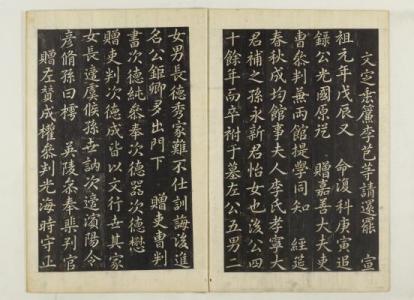 文定垂簾李芑等請還罷 宣
祖元年戊辰又 命復科庚寅追
錄公光國原從 贈嘉善大夫吏
曹參判兼兩館提學同知 經筵
春秋成均館事夫人李氏孝寧大
君補之孫永新君怡女也後公四
十餘年而卒祔于墓左公五男二
女男長德秀家難不仕訓誨後進
名公鉅卿多出門下 贈吏曹判
書次德純參奉次德器次德懋
贈吏判次德成皆以文行世其家
女長適虞候孫世訥次適濱陽令
彥脩孫曰樗 英陵參奉棐判官
贈左贊成權參判光海時守正